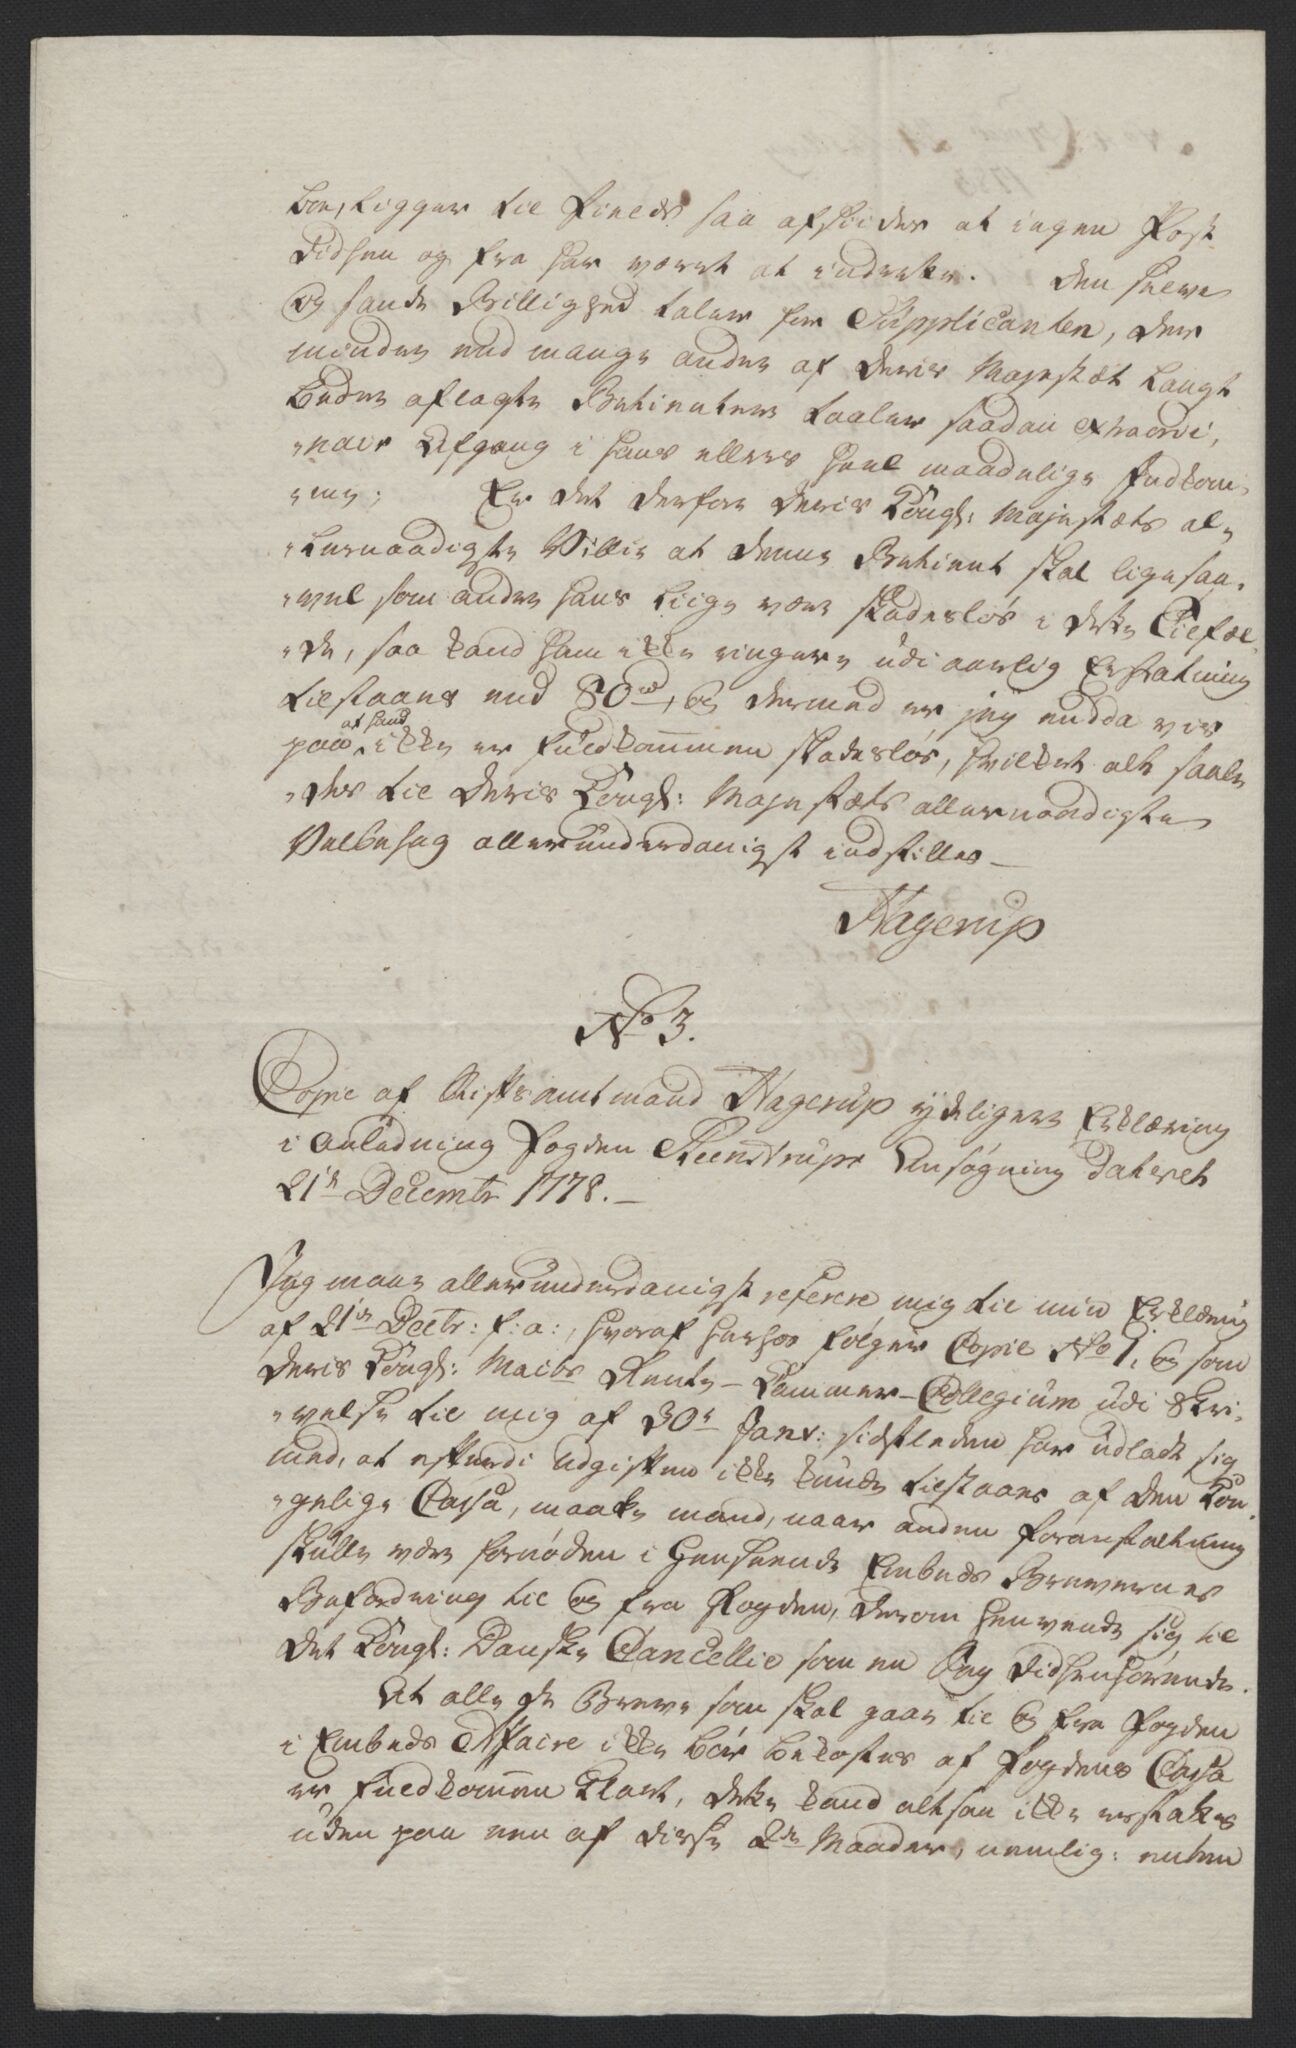 boe, ligger til Fields saa afsiides at ingen Post
didhen og fra har været at indrette. Den heele
og sande Billighed taler for Supplicanten, der
mindre end mange andre af Deris Majestæt langt
bedre aflagte Betientere taaler saadan extraordi,
nair Afgang i hans ellers heel maadelige Indkom,
me; Er det derfor Deris Kongl: Majestæts al,
lernaadigste Villie at denne Betient skal ligesaa,
vel som andre hans Liige være skadesløs i dette Tilfæl,
de, saa kand ham ikke ringere udi aarlig Erstatning
tilstaaes end 80 rd, og dermed er jeg endda vis
paa at hand ikke er fuldkommen skadesløs, hvilket alt saale
des til Deris Kongl: Majestæts allernaadigste
Velbehag allerunderdanigst indstilles —
Hagerup
No 3.
Copie af Stiftsamtmand Hagerup ydeligere Erklæring
i Anledning Fogden Steenstrups Ansøgning dateret
21de Decembr 1778. —
Jeg maae allerunderdanigst referere mig til min Erklæring
af 21de Decbr: f: a:, hvoraf herhos følger Copie No 1, og som
Deris Kongl: Maits Rente-Kammer-Collegium udi Skri,
velse til mig af 30te Janv: sidstleden har udladt sig
med, at efterdi Udgiften ikke kunde tilstaaes af den Kon,
gelige Cassa, maatte mand, naar anden Foranstaltning
skulle være fornøden i Henseende Embeds Brevernes
Befordring til og fra Fogden, derom henvende sig til
det Kongl: Danske Cancellie som en Sag didhenhørende.
At alle de Breve som skal gaae til og fra Fogden
i Embeds Affaire ikke bør bekostes af Fogdens Cassa
er fuldkommen klart, dette kand altsaa ikke erstattes
uden paa een af disse 2de Maader, nemlig: enten